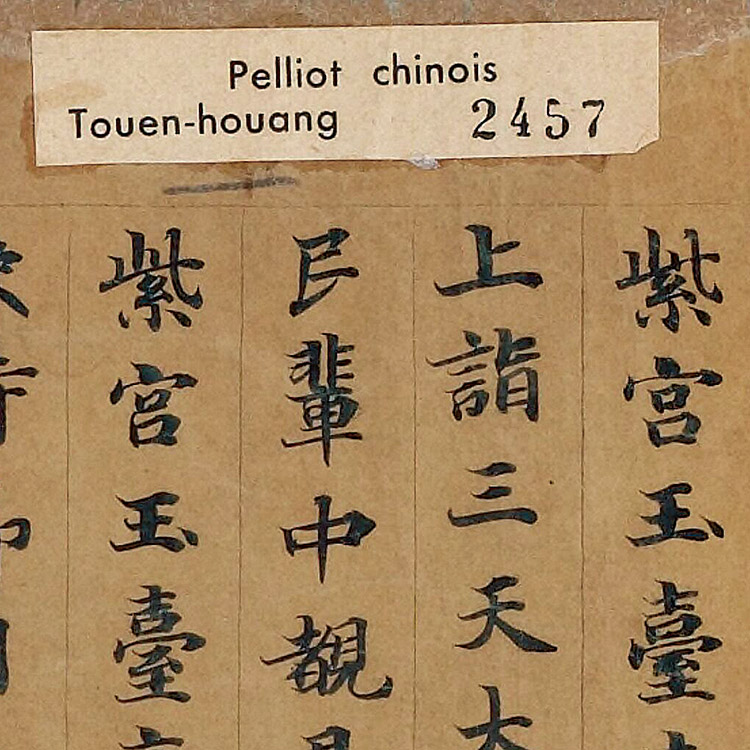 Pelliot chinois
Touen-houang 2457
紫宮玉臺
上詣三天大
民輩中覩見
紫宮玉臺